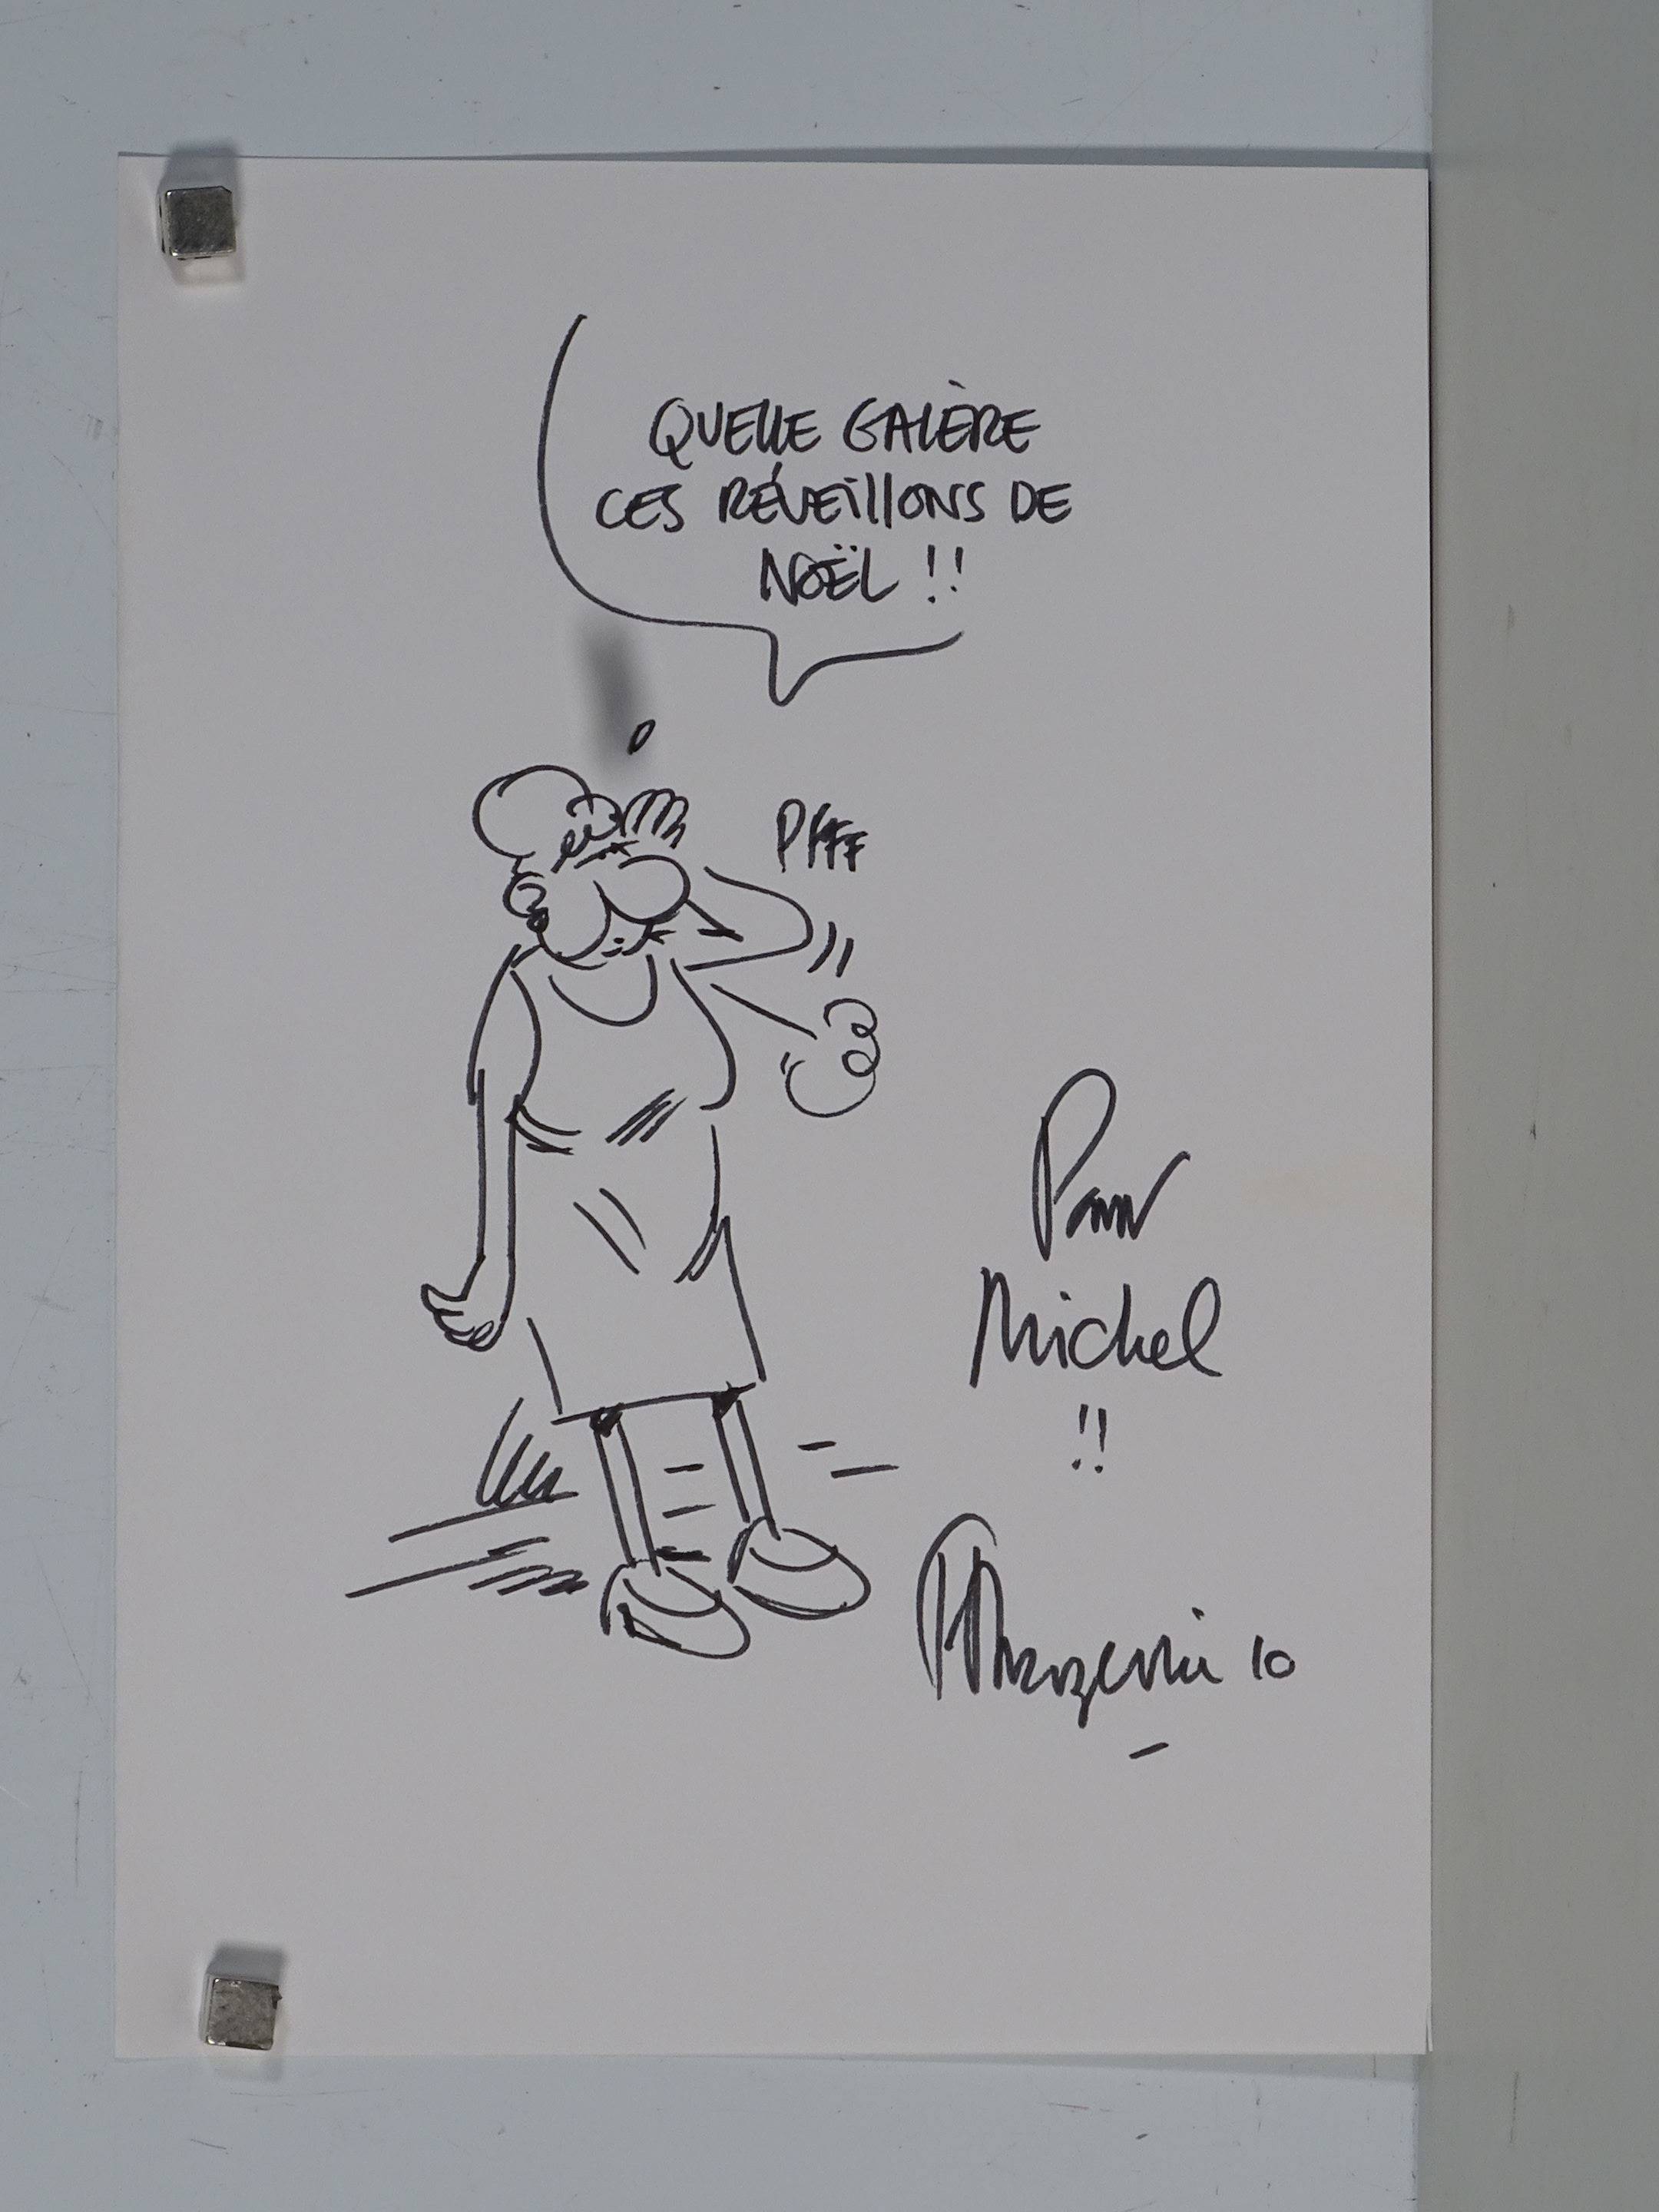 QUELLE GALÈRE
CES RÉVEILLONS DE
NOËL !!
PFFF
Pour
Michel
!!
10